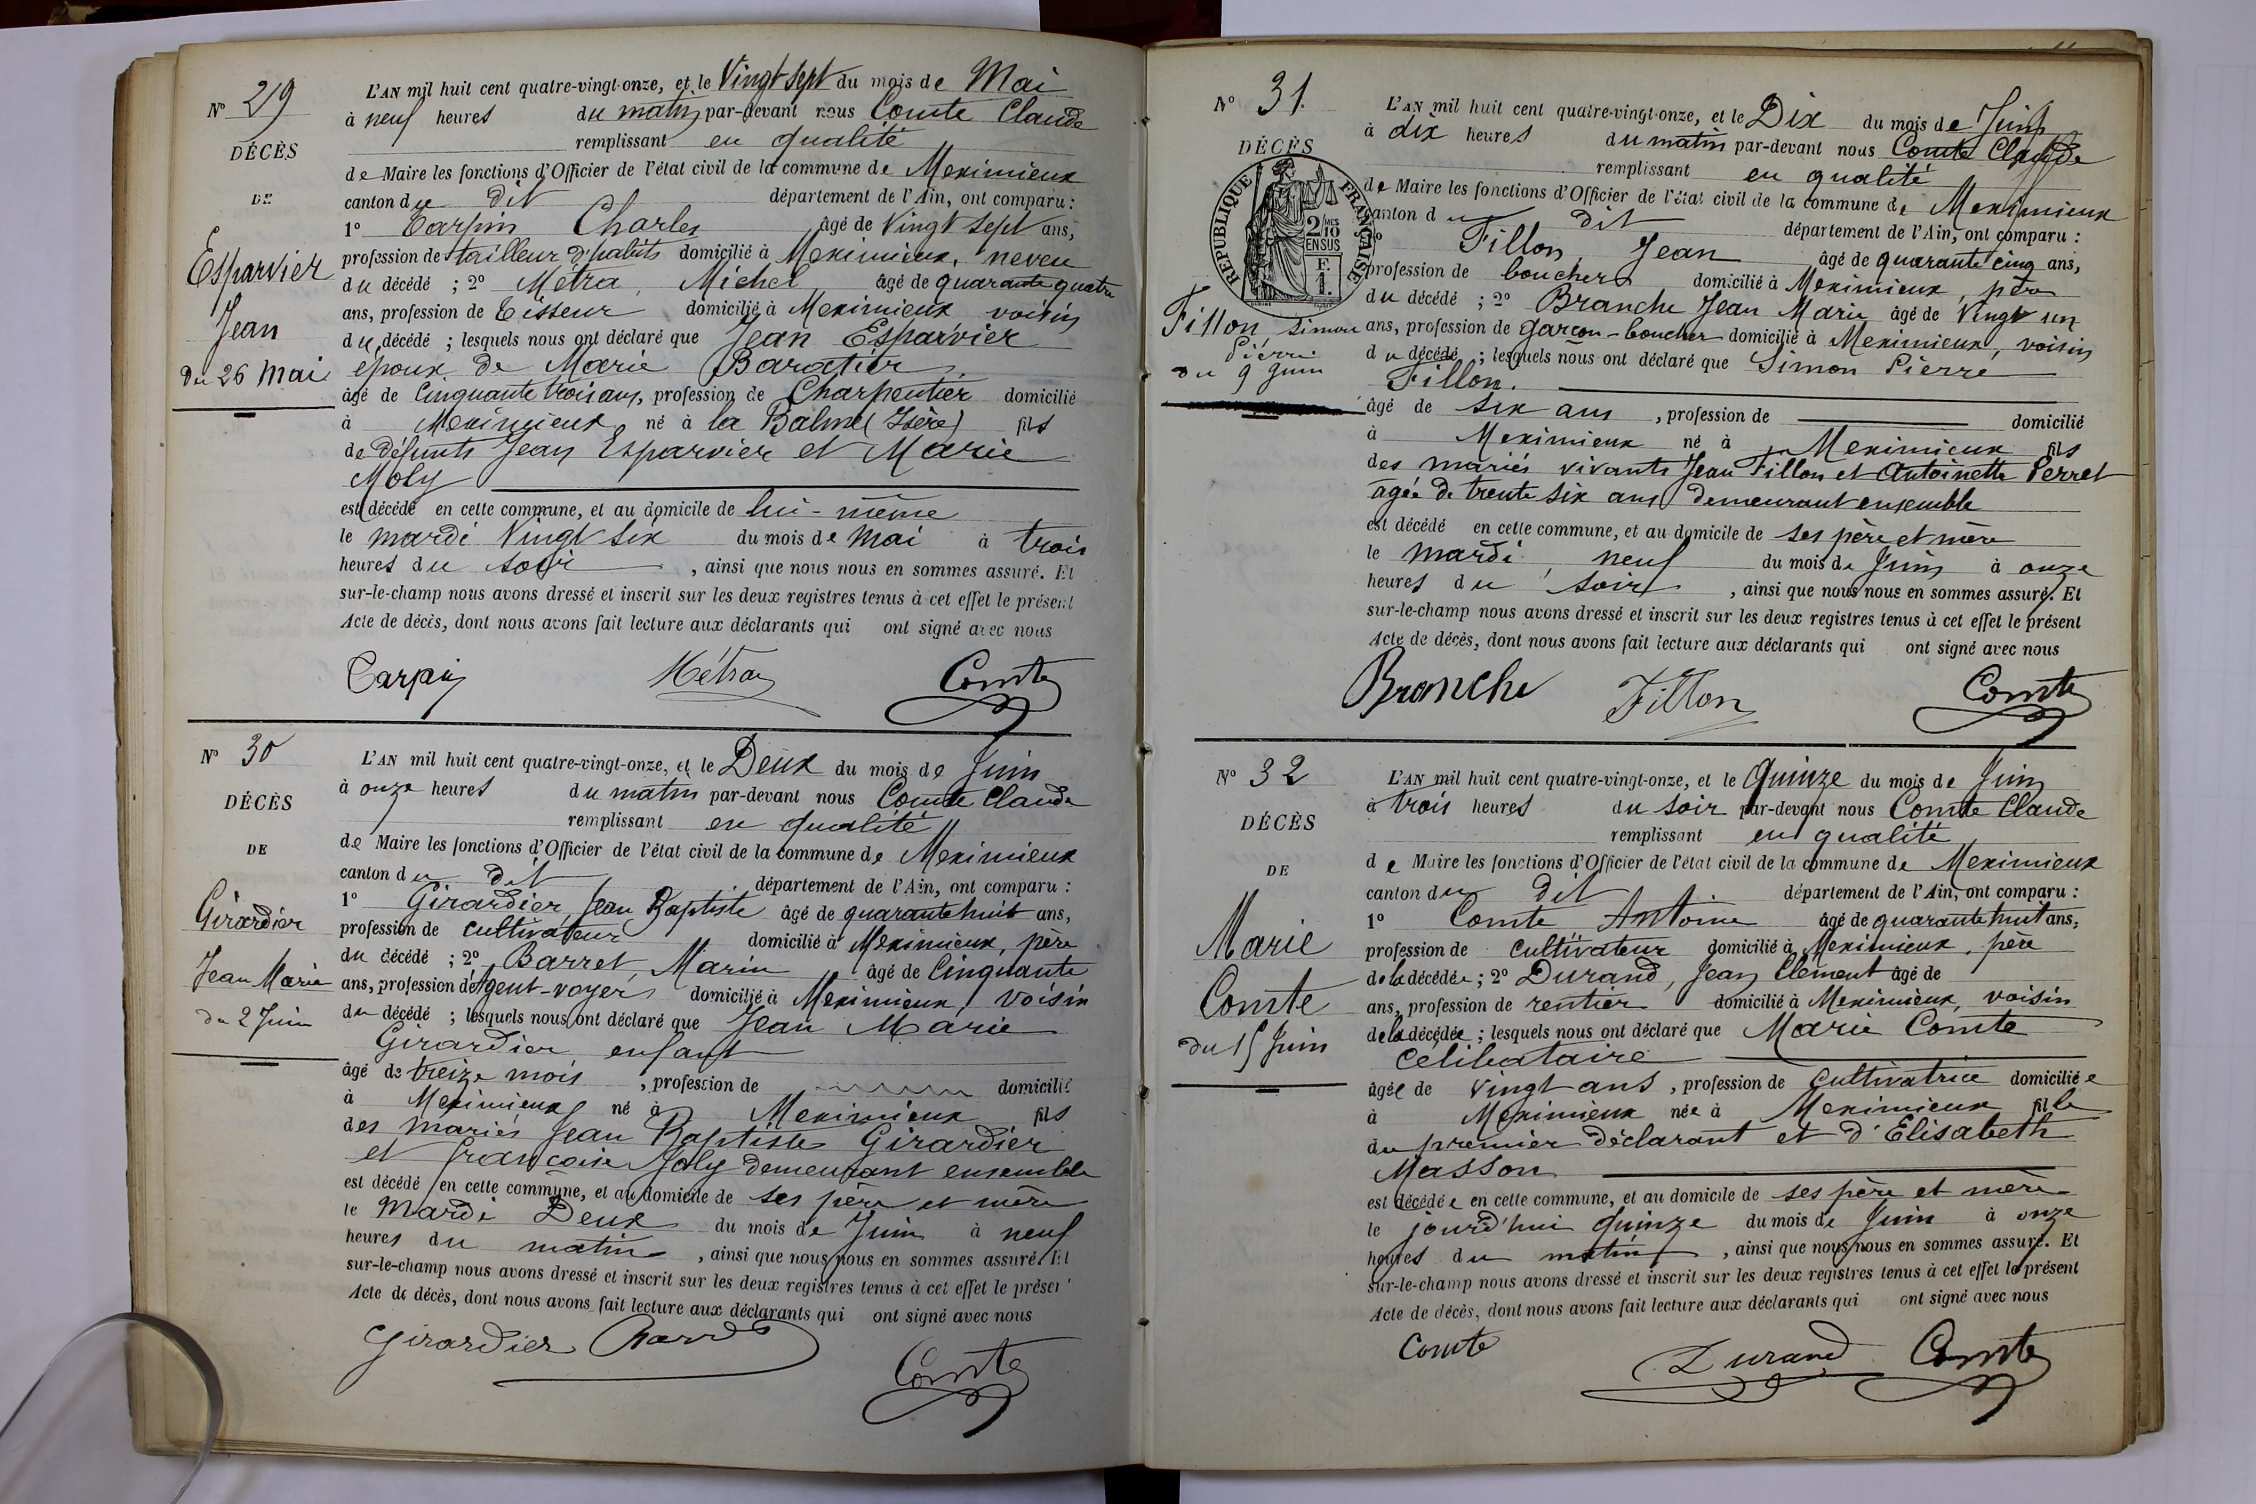 N° 29
DÉCÈS
DE
Esparvier
Jean
du 26 Mai
L'AN mil huit cent quatre-vingt-onze, et le Vingt sept du mois de Mai
à neuf heures du matin par-devant nous Comte Claude
remplissant en qualité
de Maire les fonctions d'Officier de l'état civil de la commune de Meximieux
canton du dit département de l'Ain, ont comparu :
1° Carpin Charles âgé de Vingt sept ans,
profession de tailleur d'habits domicilié à Meximieux, neveu
du décédé ; 2° Métra, Michel âgé de quarante quatre
ans, profession de Tisseur domicilié à Meximieux voisin
du décédé ; lesquels nous ont déclaré que Jean Esparvier
époux de Marie Baratier.
âgé de Cinquante trois ans, profession de Charpentier domicilié
à Meximieux né à la Balme (Isère) fils
de défunts Jean Esparvier et Marie
Moly
est décédé en cette commune, et au domicile de lui-même
le mardi Vingt six du mois de Mai à trois
heures du soir, ainsi que nous nous en sommes assuré. Et
sur-le-champ nous avons dressé et inscrit sur les deux registres tenus à cet effet le présent
Acte de décès, dont nous avons fait lecture aux déclarants qui ont signé avec nous
Carpin Métra Comte
N° 30
DÉCÈS
DE
Girardier
Jean Marie
du 2 Juin
L'AN mil huit cent quatre-vingt-onze, et le Deux du mois de Juin
à onze heures du matin par-devant nous Comte Claude
remplissant en qualité
de Maire les fonctions d'Officier de l'état civil de la commune de Meximieux
canton du dit département de l'Ain, ont comparu :
1° Girardier, Jean Baptiste âgé de quarante huit ans,
profession de cultivateur domicilié à Meximieux, père
du décédé ; 2° Barret, Marin âgé de Cinquante
ans, profession de Agent-voyer domicilié à Meximieux, voisin
du décédé ; lesquels nous ont déclaré que Jean Marie
Girardier enfant
âgé de treize mois, profession de domicilié
à Meximieux né à Meximieux fils
des mariés Jean Baptiste Girardier
et françoise Joly demeurant ensemble
est décédé en cette commune, et au domicile de ses père et mère
le Mardi Deux du mois de Juin à neuf
heures du matin, ainsi que nous nous en sommes assuré. Et
sur-le-champ nous avons dressé et inscrit sur les deux registres tenus à cet effet le présent
Acte de décès, dont nous avons fait lecture aux déclarants qui ont signé avec nous
Girardier Comte
N° 31.
DÉCÈS
RÉPUBLIQUE FRANÇAISE
2/10 EN SUS
F. 1.
Fillon, Simon
Pierre
du 9 Juin
L'AN mil huit cent quatre-vingt-onze, et le Dix du mois de Juin
à dix heures du matin par-devant nous Comte Claude
remplissant en qualité
de Maire les fonctions d'Officier de l'état civil de la commune de Meximieux
canton du dit département de l'Ain, ont comparu :
Fillon Jean âgé de quarante cinq ans,
profession de boucher domicilié à Meximieux, père
du décédé ; 2° Branche Jean Marie âgé de Vingt un
ans, profession de garçon-boucher domicilié à Meximieux, voisin
du décédé ; lesquels nous ont déclaré que Simon Pierre
Fillon.
âgé de six ans, profession de domicilié
à Meximieux né à Meximieux fils
des mariés vivants Jean Fillon et Antoinette Perret
agée de trente six ans demeurant ensemble
est décédé en cette commune, et au domicile de ses père et mère
le mardi, neuf du mois de Juin à onze
heures du soir, ainsi que nous nous en sommes assuré. Et
sur-le-champ nous avons dressé et inscrit sur les deux registres tenus à cet effet le présent
Acte de décès, dont nous avons fait lecture aux déclarants qui ont signé avec nous
Branche Fillon Comte
N° 32
DÉCÈS
DE
Marie
Comte
du 15 Juin
L'AN mil huit cent quatre-vingt-onze, et le Quinze du mois de Juin
à trois heures du soir par-devant nous Comte Claude
remplissant en qualité
de Maire les fonctions d'Officier de l'état civil de la commune de Meximieux
canton du dit département de l'Ain, ont comparu :
1° Comte Antoine âgé de quarante huit ans,
profession de cultivateur domicilié à Meximieux, père
de la décédée ; 2° Durand, Jean Clément âgé de
ans, profession de rentier domicilié à Meximieux, voisin
de la décédée ; lesquels nous ont déclaré que Marie Comte
célibataire
âgée de vingt ans, profession de cultivatrice domiciliée
à Meximieux née à Meximieux fille
du premier déclarant et d'Elisabeth
Masson
est décédée en cette commune, et au domicile de ses père et mère
le jourd'hui quinze du mois de Juin à onze
heures du matin, ainsi que nous nous en sommes assuré. Et
sur-le-champ nous avons dressé et inscrit sur les deux registres tenus à cet effet le présent
Acte de décès, dont nous avons fait lecture aux déclarants qui ont signé avec nous
Comte Durand Comte